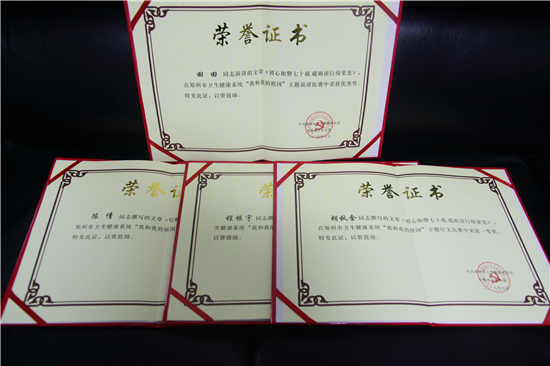 荣誉证书
田田 同志演讲的文章《初心如磐七十载 砥砺前行续荣光》,
在郑州市卫生健康系统“我和我的祖国”主题演讲比赛中荣获优秀奖。
特发此证,以资鼓励。
荣誉证
陈倩 同志撰写的文章《忆
郑州市卫生健康系统“我和我的祖国”
特发此证,以资鼓励。
荣
程振宇 同志撰写的文
生健康系统“我和我的
鼓励。
荣誉证书
胡秋舍 同志撰写的文章《初心如磐七十载 砥砺前行续荣光》,
在郑州市卫生健康系统“我和我的祖国”主题征文比赛中荣获一等奖。
特发此证,以资鼓励。